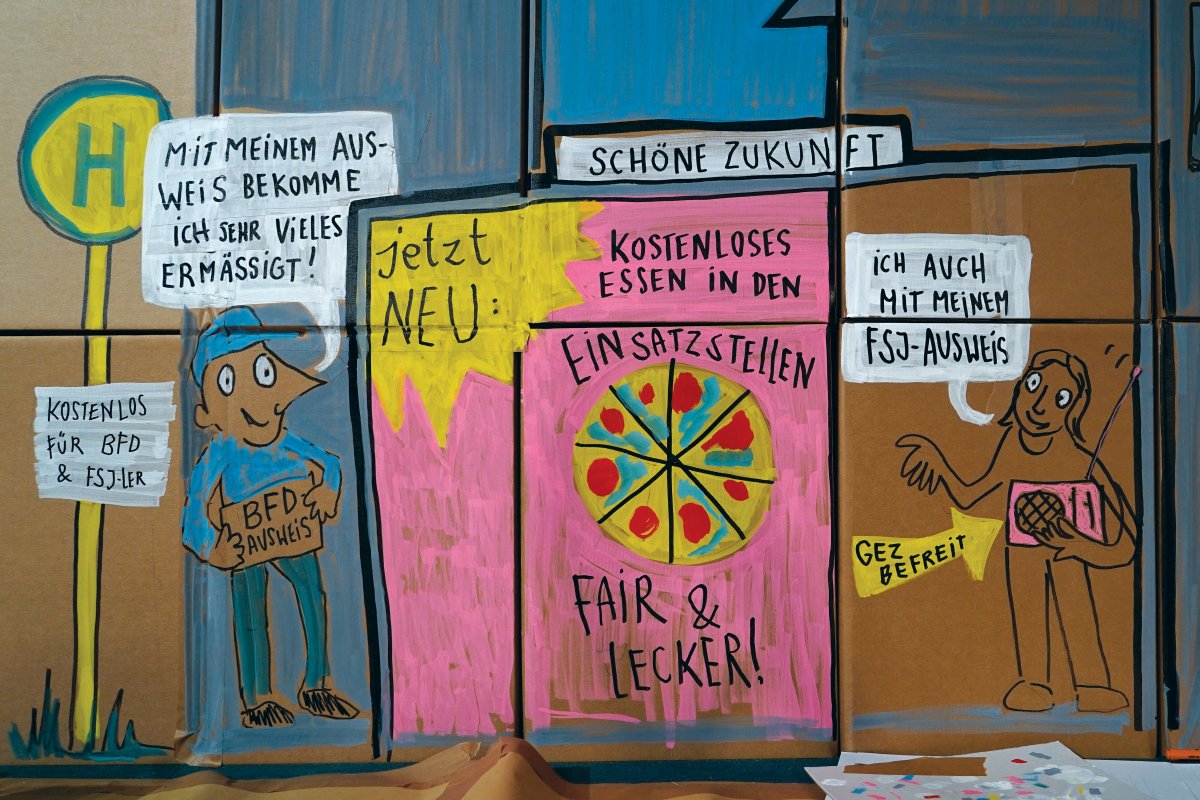 H
MIT MEINEM AUS-
WEIS BEKOMME
ICH SEHR VIELES
ERMÄSSIGT!
KOSTENLOS
FÜR BFD
& FSJ-LER
BFD-
AUSWEIS
SCHÖNE ZUKUNFT
jetzt
NEU:
KOSTENLOSES
ESSEN IN DEN
EINSATZSTELLEN
FAIR &
LECKER!
ICH AUCH
MIT MEINEM
FSJ-AUSWEIS
GEZ
BEFREIT